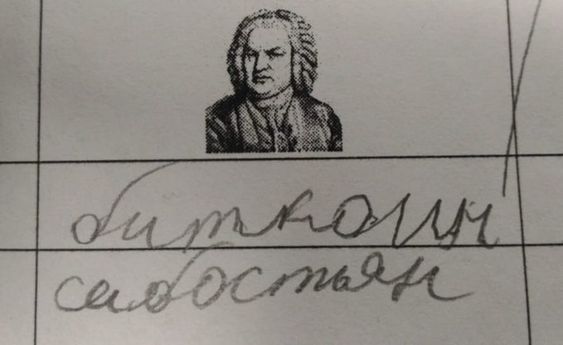 биткоин
себостьян